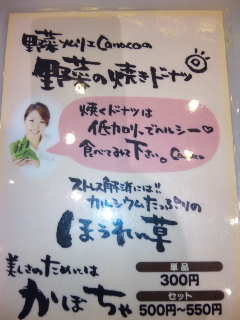 野菜ソムリエCanacoの
野菜の焼きドーナツ
焼くドーナツは
低カロリーでヘルシー♡
食べてみて下さい。Canaco
ストレス解消には!!
カルシウムたっぷりの
ほうれん草
美しさのためには
かぼちゃ
単品
300円
セット
500円〜550円